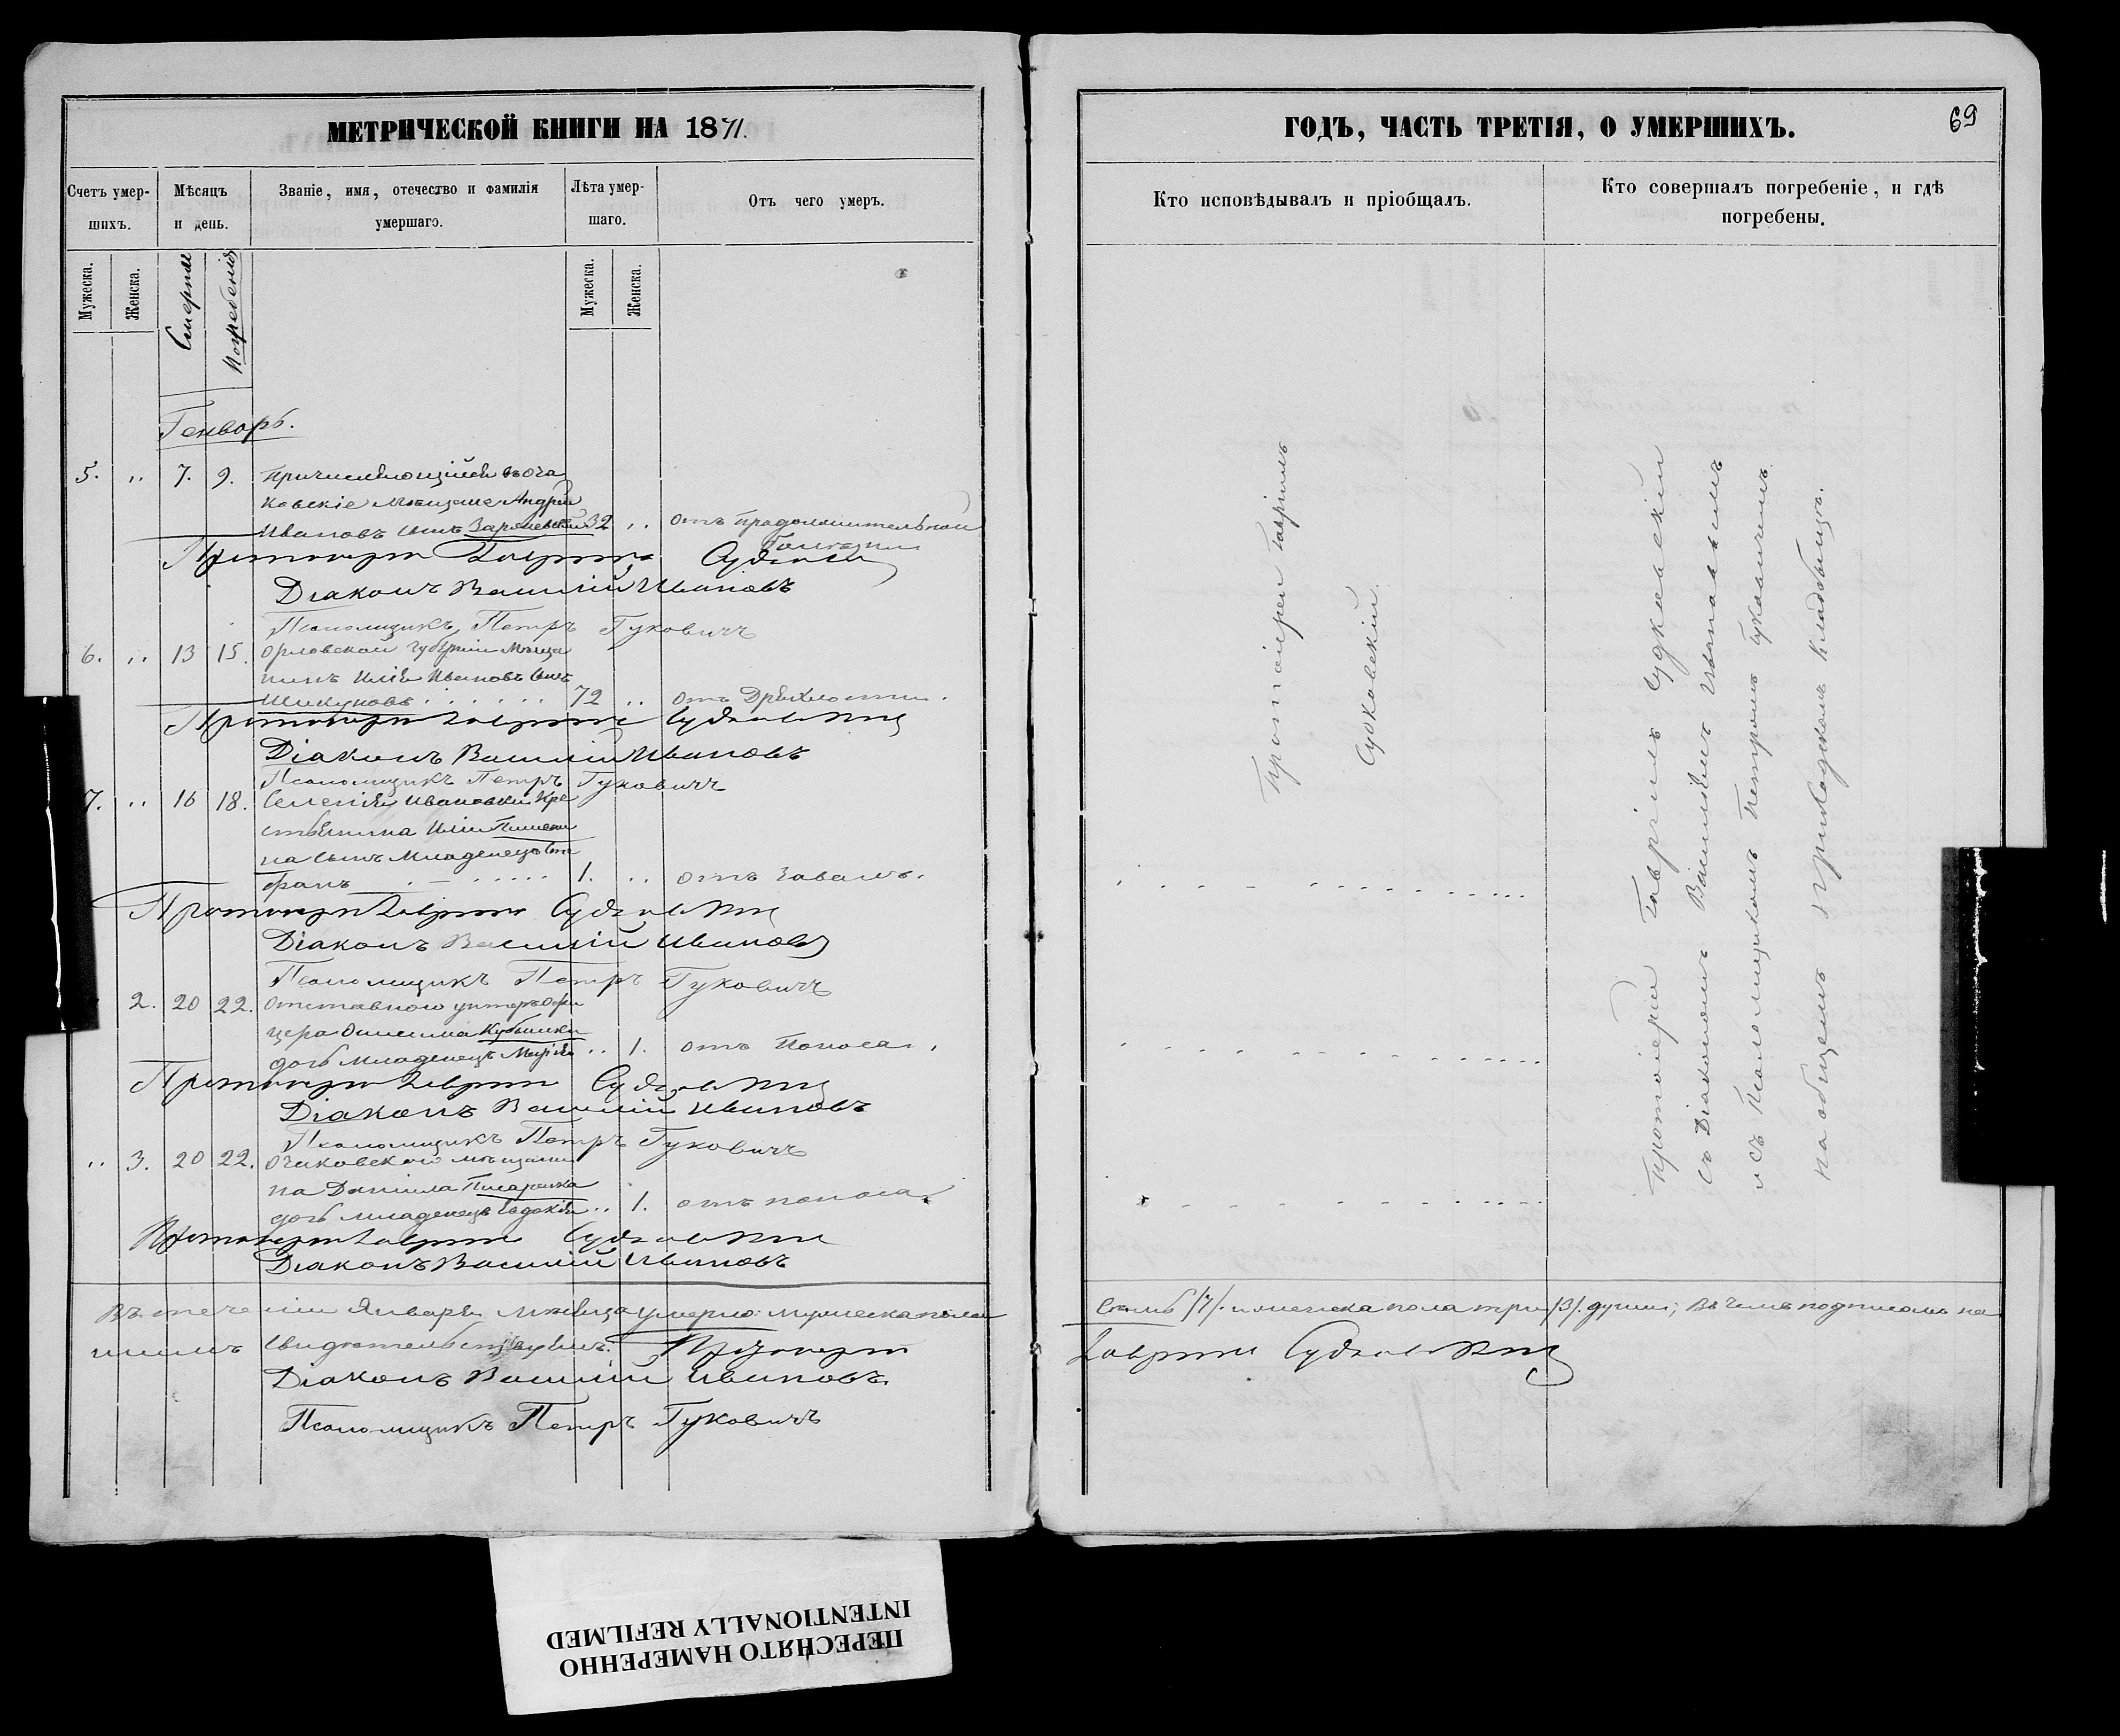 МЕТРИЧЕСКОЙ КНИГИ НА 1871.
Счетъ умер-
шихъ.
Мѣсяцъ
и день.
Званіе, имя, отечество и фамилія
умершаго.
Лѣта умер-
шаго.
Отъ чего умеръ.
Мужеска.
Женска.
Смерти
Погребенія
Мужеска.
Женска.
Генварь.
5. ,, 7. 9. Причисляющійся въ Оча
ковскіе мѣщане Андрей
Ивановъ сынъ 32 ,, отъ продолжительной
болезни
Протоіерей Гавріилъ Судковскій
Діаконъ Василій Ивановъ
Псаломщикъ Петръ Гуковичъ
6. ,, 13 15. Орловской губерніи мѣща
нинъ Илія Ивановъ сынъ
Шикуновъ 72 ,, отъ Дряхлости.
Протоіерей Гавріилъ Судковскій
Діаконъ Василій Ивановъ
Псаломщикъ Петръ Гуковичъ
7. ,, 16 18. Селенія Ивановки Кре
стьянина Иліи
на сынъ младенецъ Сте
фанъ 1. ,, отъ Завалъ.
Протоіерей Гавріилъ Судковскій
Діаконъ Василій Ивановъ
Псаломщикъ Петръ Гуковичъ
2. 20 22. Отставного унтеръ Офи
цера Онисима Кубышки
дочь младенецъ Марія ,, 1. отъ Поноса.
Протоіерей Гавріилъ Судковскій
Діаконъ Василій Ивановъ
Псаломщикъ Петръ Гуковичъ
,, 3. 20 22. Очаковского мѣщани
на Даніила Писаренка
дочь младенецъ Евдокія ,, 1. отъ поноса
Протоіерей Гавріилъ Судковскій
Діаконъ Василій Ивановъ
Въ теченіи Января мѣсяца умерло: мужеска пола
шимъ свидѣтельствуемъ. Протоіерей
Діаконъ Василій Ивановъ
Псаломщикъ Петръ Гуковичъ
ГОДЪ, ЧАСТЬ ТРЕТІЯ, О УМЕРШИХЪ.
69
Кто исповѣдывалъ и пріобщалъ.
Кто совершалъ погребеніе, и гдѣ
погребены.
Протоіерей Гавріилъ
Судковскій.
Протоіерей Гавріилъ Судковскій
съ Діакономъ Василіемъ Ивановымъ
и съ Псаломщикомъ Петромъ Гуковичемъ
на общемъ приходскомъ кладбищѣ.
Семь /7/. и женска пола три /3/. души; въ чемъ подписомъ на
Гавріилъ Судковскій
ПЕРЕСНЯТО НАМЕРЕННО
INTENTIONALLY REFILMED